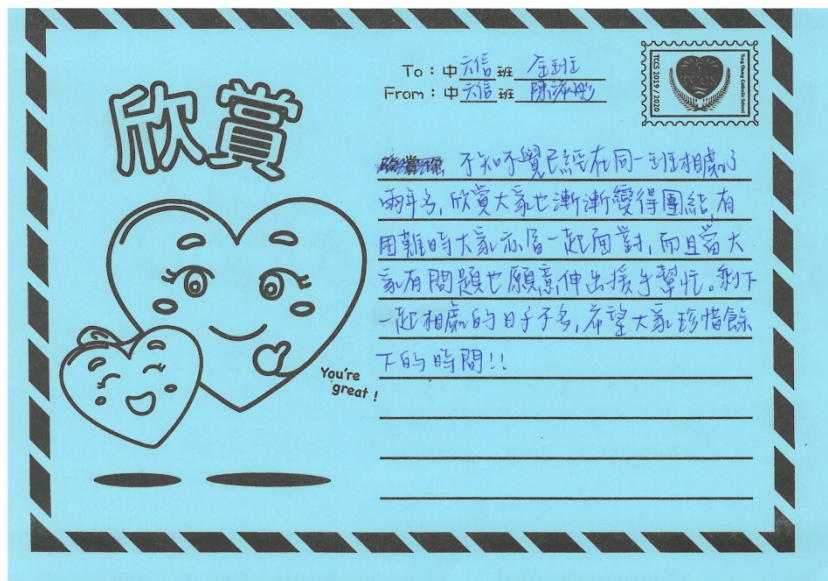 欣賞
To：中六信班 全班
From：中六信班 陳
TCCS 2019 / 2020
TCCS
不知不覺已經在同一班相處了
兩年多，欣賞大家也漸漸變得團結，有
困難時大家亦會一起面對，而且當大
家有問題也願意伸出援手幫忙。剩下
一起相處的日子不多，希望大家珍惜餘
下的時間!!
You're
great !